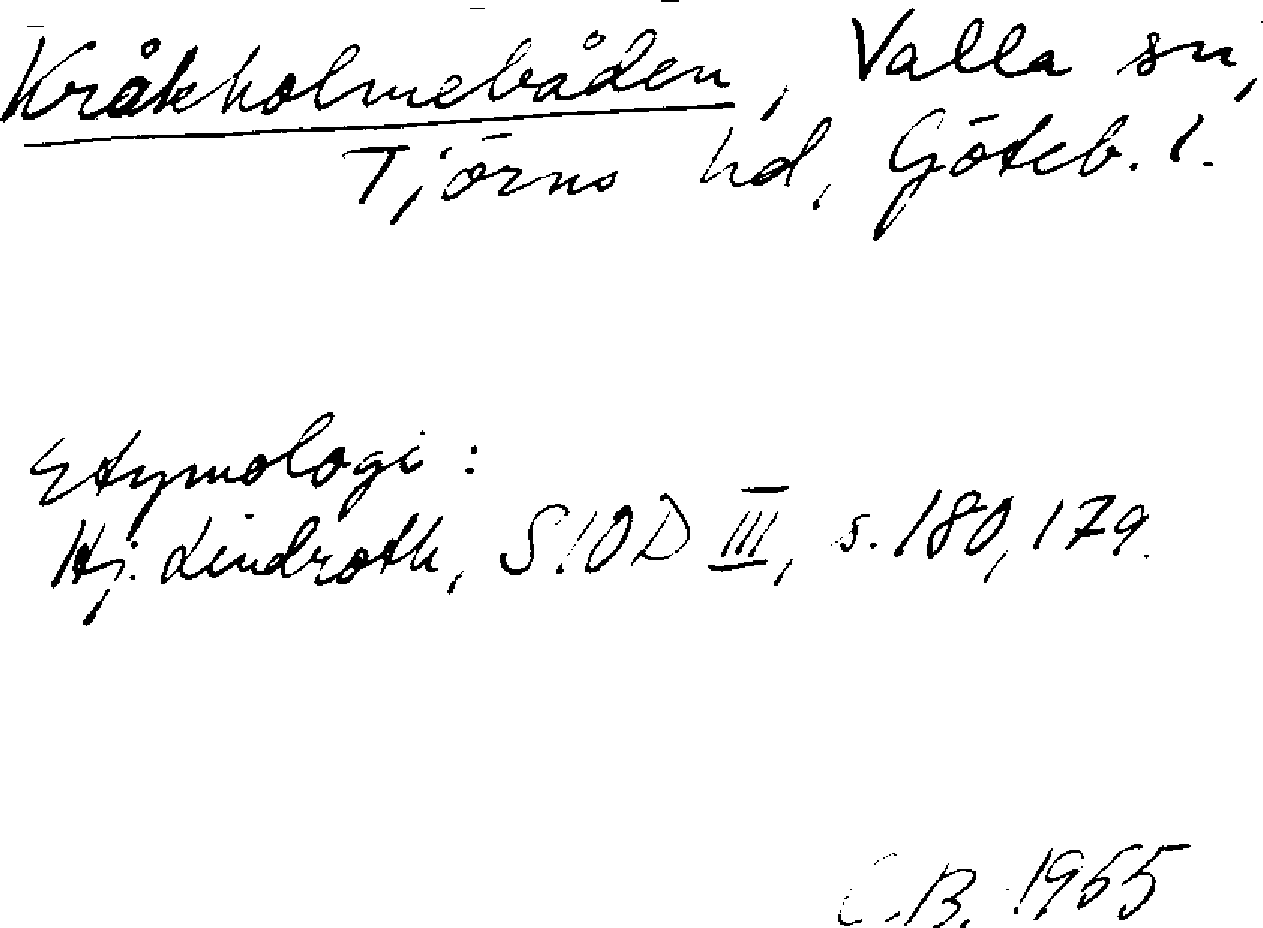 Kråkholmebåden, Valla sn,
Tjörns hd, Göteb. l.
Etymologi:
Hj. Lindroth, SIOD III, s. 180, 179.
C.B. 1965